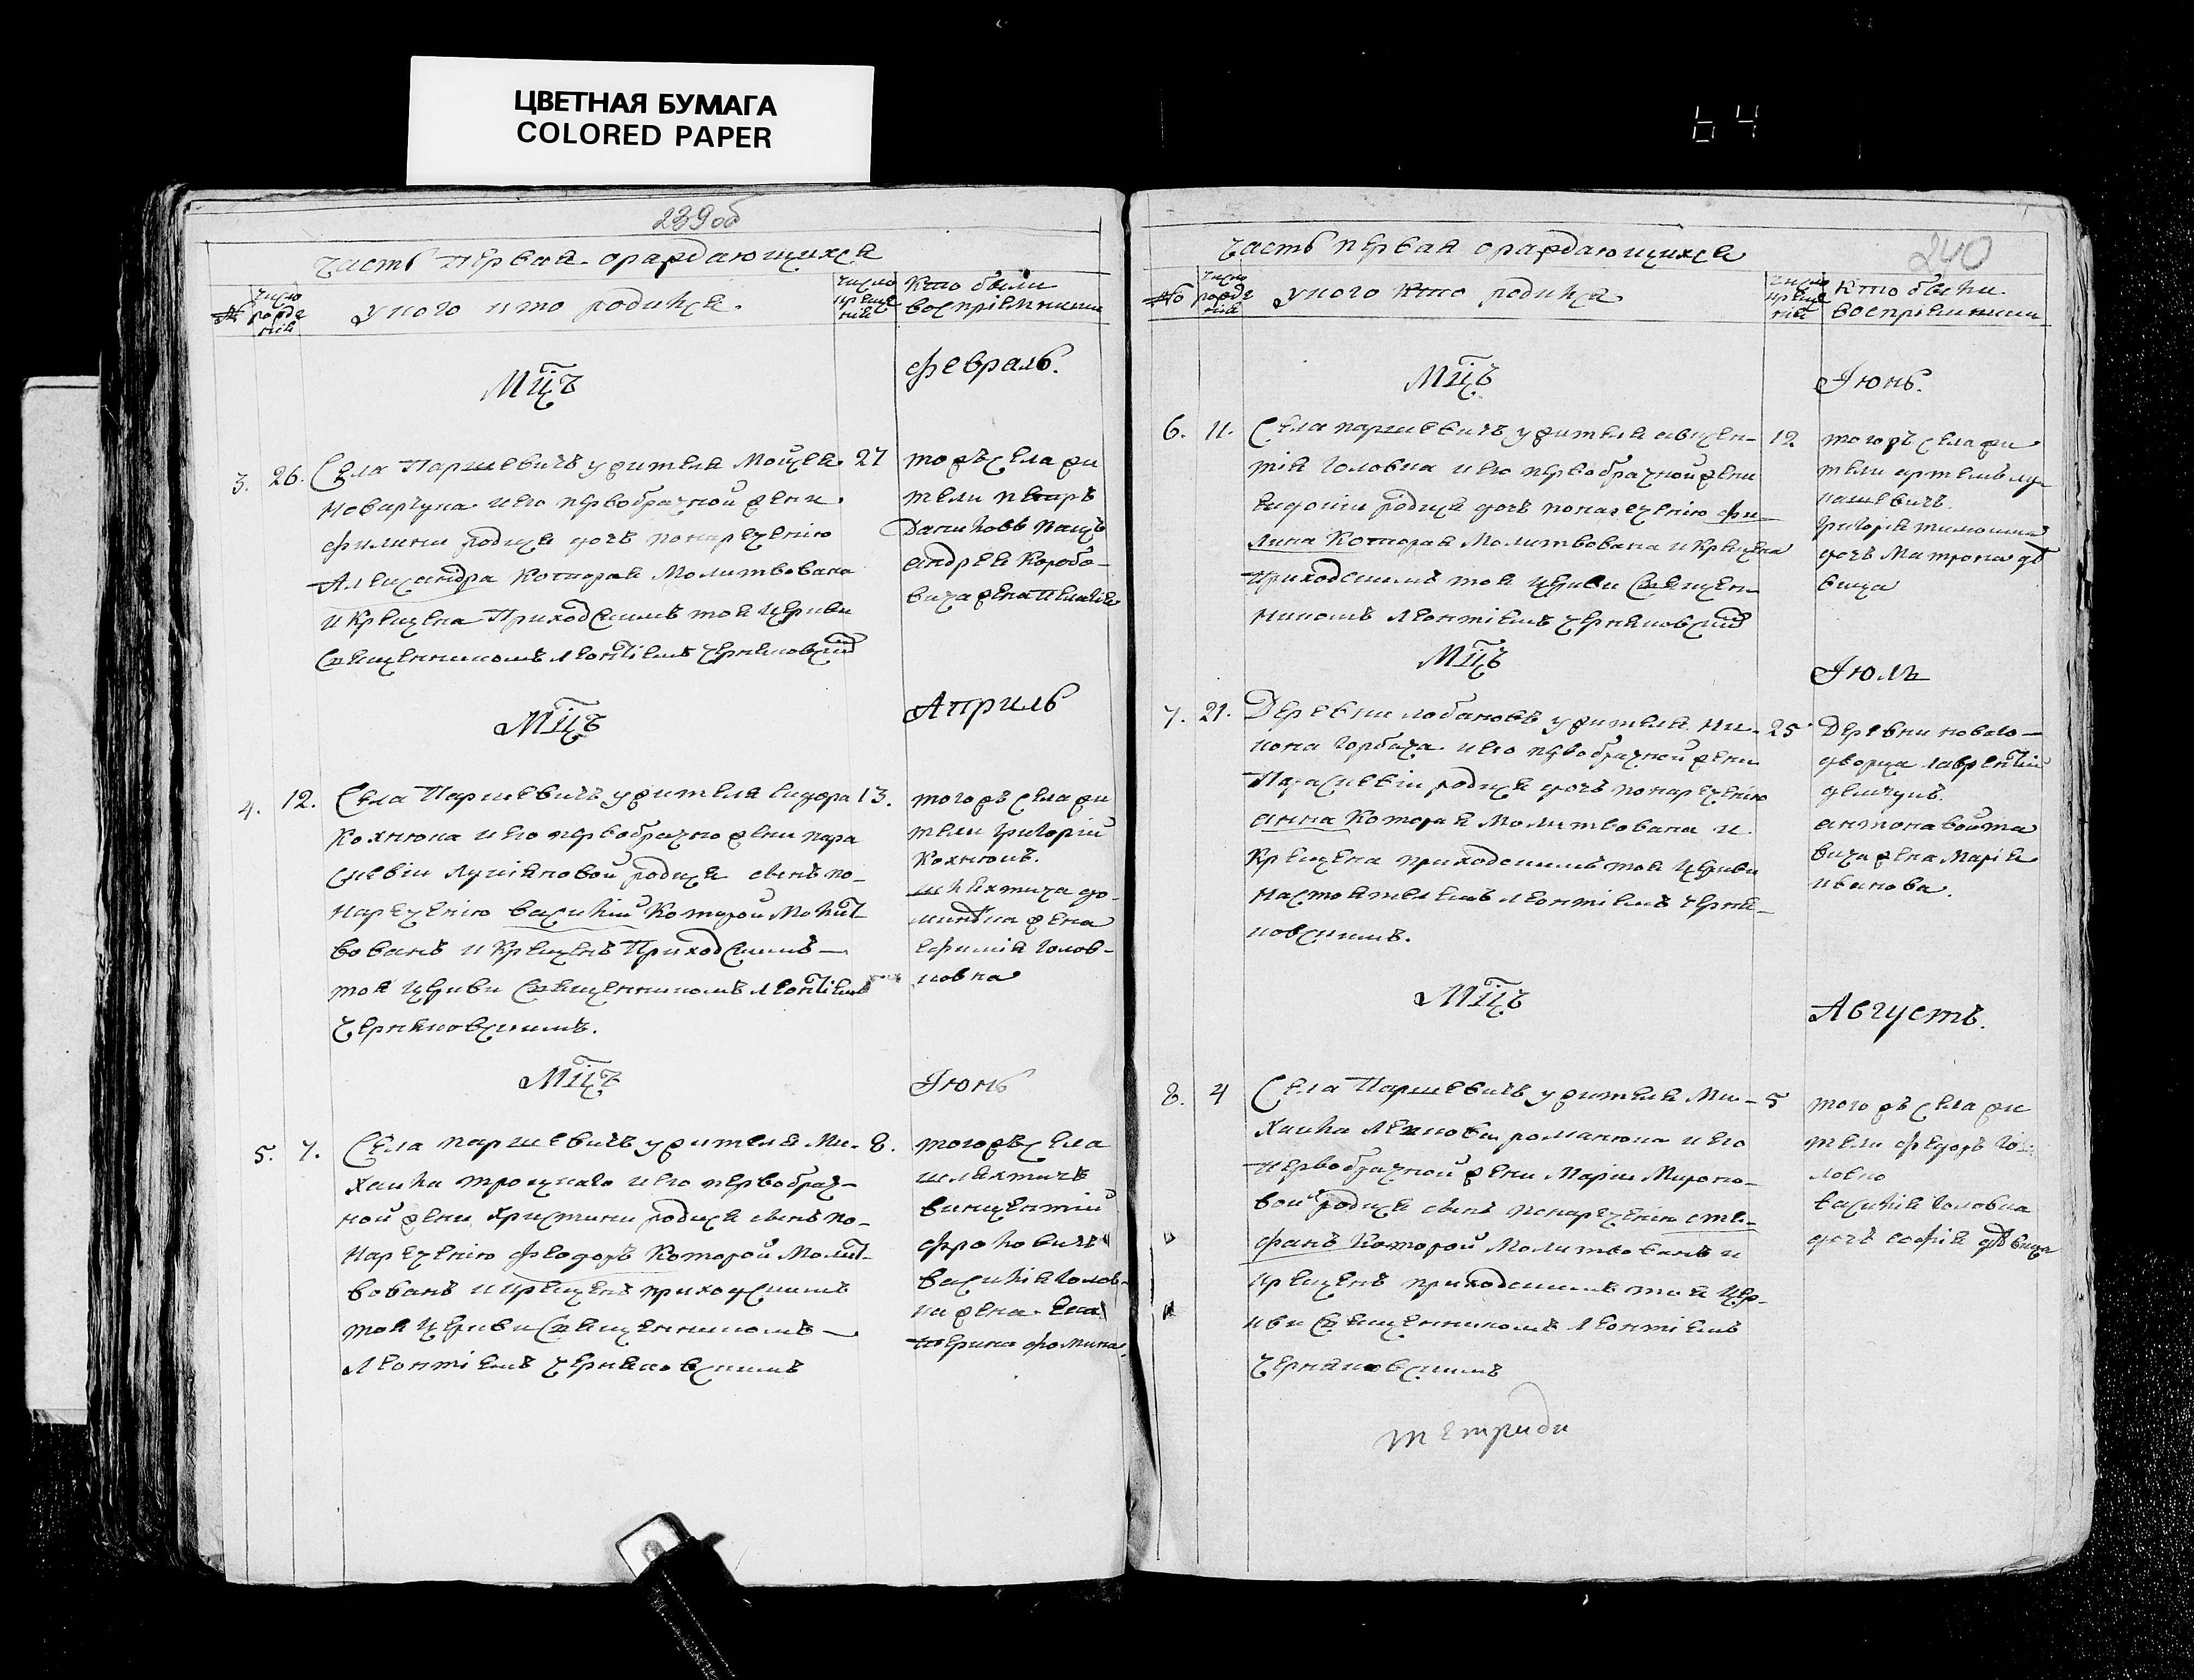 ЦВЕТНАЯ БУМАГА
COLORED PAPER
64
239об
Часть первая о раждающихся
№
число рожде нія
У кого кто родился.
число креще нія
Кто были воспріемники
Мцъ
Февраль.
3. 26. Села Паршевичъ у жителя Моисея
Новарчука и его первобрачной жени
Филини родися дочь по нареченію
Александра Которая Молитвована
и Крещена Приходскимъ тоя Церкви
Священникомъ Леонтіемъ Черняковский
27
тожъ села жи
тели Петръ
Даниловъ Пащъ
андрея Коробо-
вича жена Пелагія
Мцъ
Априль
4. 12. Села Паршевичъ у жителя Сидора
Кохнюка и его первобрачно жени пара
скевіи Лукіяновой родися синъ по-
нареченію Василій Которой Молит-
вованъ и Крещенъ Приходскимъ
тоя Церкви Священникомъ Леонтіемъ
Черняковскимъ.
13.
тогожъ села жи
тели Григорій
Кохнюкъ.
шляхтича до-
миника жена
Ефимія Голов-
ковна
Мцъ
Іюнь
5. 7. Села Паршевичъ у жителя Ми-
хаила троцкаго и его первобрач-
ной жени Христини родися синъ по-
нареченію Феодоръ Которой Молит-
вованъ и крещенъ приходскимъ
тоя Церкви Священникомъ
Леонтіемъ Черняковскимъ
8.
тогожъ села
шляхтичъ
викентій
фроловичъ
василія Голов-
ки жена Ека
терина фомина.
240
Часть первая о раждающихся
№
число рожде нія
У кого кто родился
число креще нія
Кто были воспріемники
Мцъ
Іюнь.
6. 11. Села паршевичъ у жителя авксен-
тія Головка и его первобрачной жени
Евдокіи родися дочь по нареченію Фи-
лина Которая Молитвована и Крещена
Приходскимъ тоя Церкви Священ-
никомъ Леонтіемъ Черняковский
12
тогожъ села жи
тели артемъ лу-
кашевичъ.
Григорія тимошика
дочь Матрона дѣ
вица
Мцъ
Іюль
7. 21. Деревни лобановъ у жителя Ни-
кона Горбача и его первобрачной жени
Параскевіи родися дочь по нареченію
анна Которая Молитвована и
Крещена приходскимъ тоя Церкви
Настоятелемъ Леонтіемъ Черня-
ковскимъ.
25
Деревни новаго-
дворца лаврентій
демчукъ.
антона войта
вича жена Марія
иванова.
Мцъ
Августъ.
8. 4 Села Паршевичъ у жителя Ми-
хаила Леинова романюка и его
первобрачной жени Маріи Мироно-
вой родися синъ по нареченію сте-
фанъ Которой Молитвованъ и
крещенъ приходскимъ тоя Цер-
кви Священникомъ Леонтіемъ
Черняковскимъ
5
тогожъ села жи
тели феодоръ Го-
ловко
василія Головка
дочь софія дѣвица